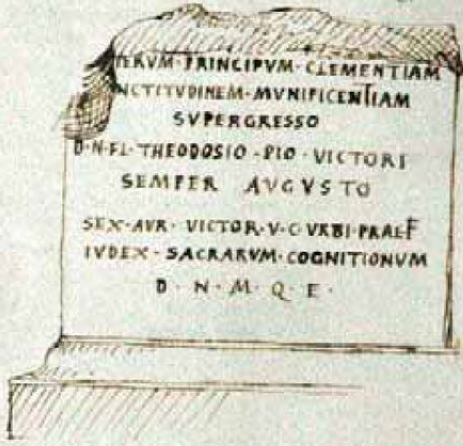 TERVM · PRINCIPVM · CLEMENTIAM
NCTITVDINEM · MVNIFICENTIAM
SVPERGRESSO
D · N · FL · THEODOSIO · PIO · VICTORI
SEMPER AVGVSTO
SEX · AVR · VICTOR · V · C · VRBI · PRAEF
IVDEX · SACRARVM · COGNITIONVM
D · N · M · Q · E ·